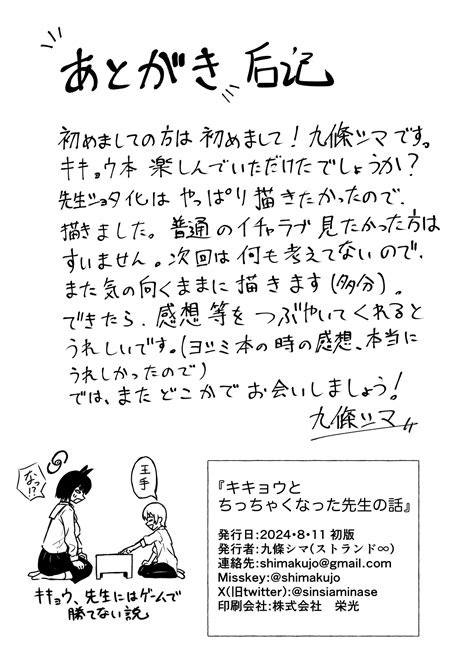 あとがき 后记
初めましての方は初めまして！九條シマです。
キキョウ本 楽しんでいただけたでしょうか？
先生ショタ化は やっぱり描きたかったので、
描きました。普通のイチャラブ見たかった方は
すいません。次回は何も考えてないので、
また気の向くままに描きます(多分)。
できたら、感想等をつぶやいてくれると
うれしいです。(ヨツミ本の時の感想、本当に
うれしかったので)
では、またどこかでお会いしましょう！
九條シマ
なっ!?
王手
キキョウ、先生にはゲームで
勝てない説
『キキョウと
ちっちゃくなった先生の話』
発行日:2024・8・11 初版
発行者:九條シマ(ストランド∞)
連絡先:shimakujo@gmail.com
Misskey:@shimakujo
X(旧twitter):@sinsiaminase
印刷会社:株式会社 栄光